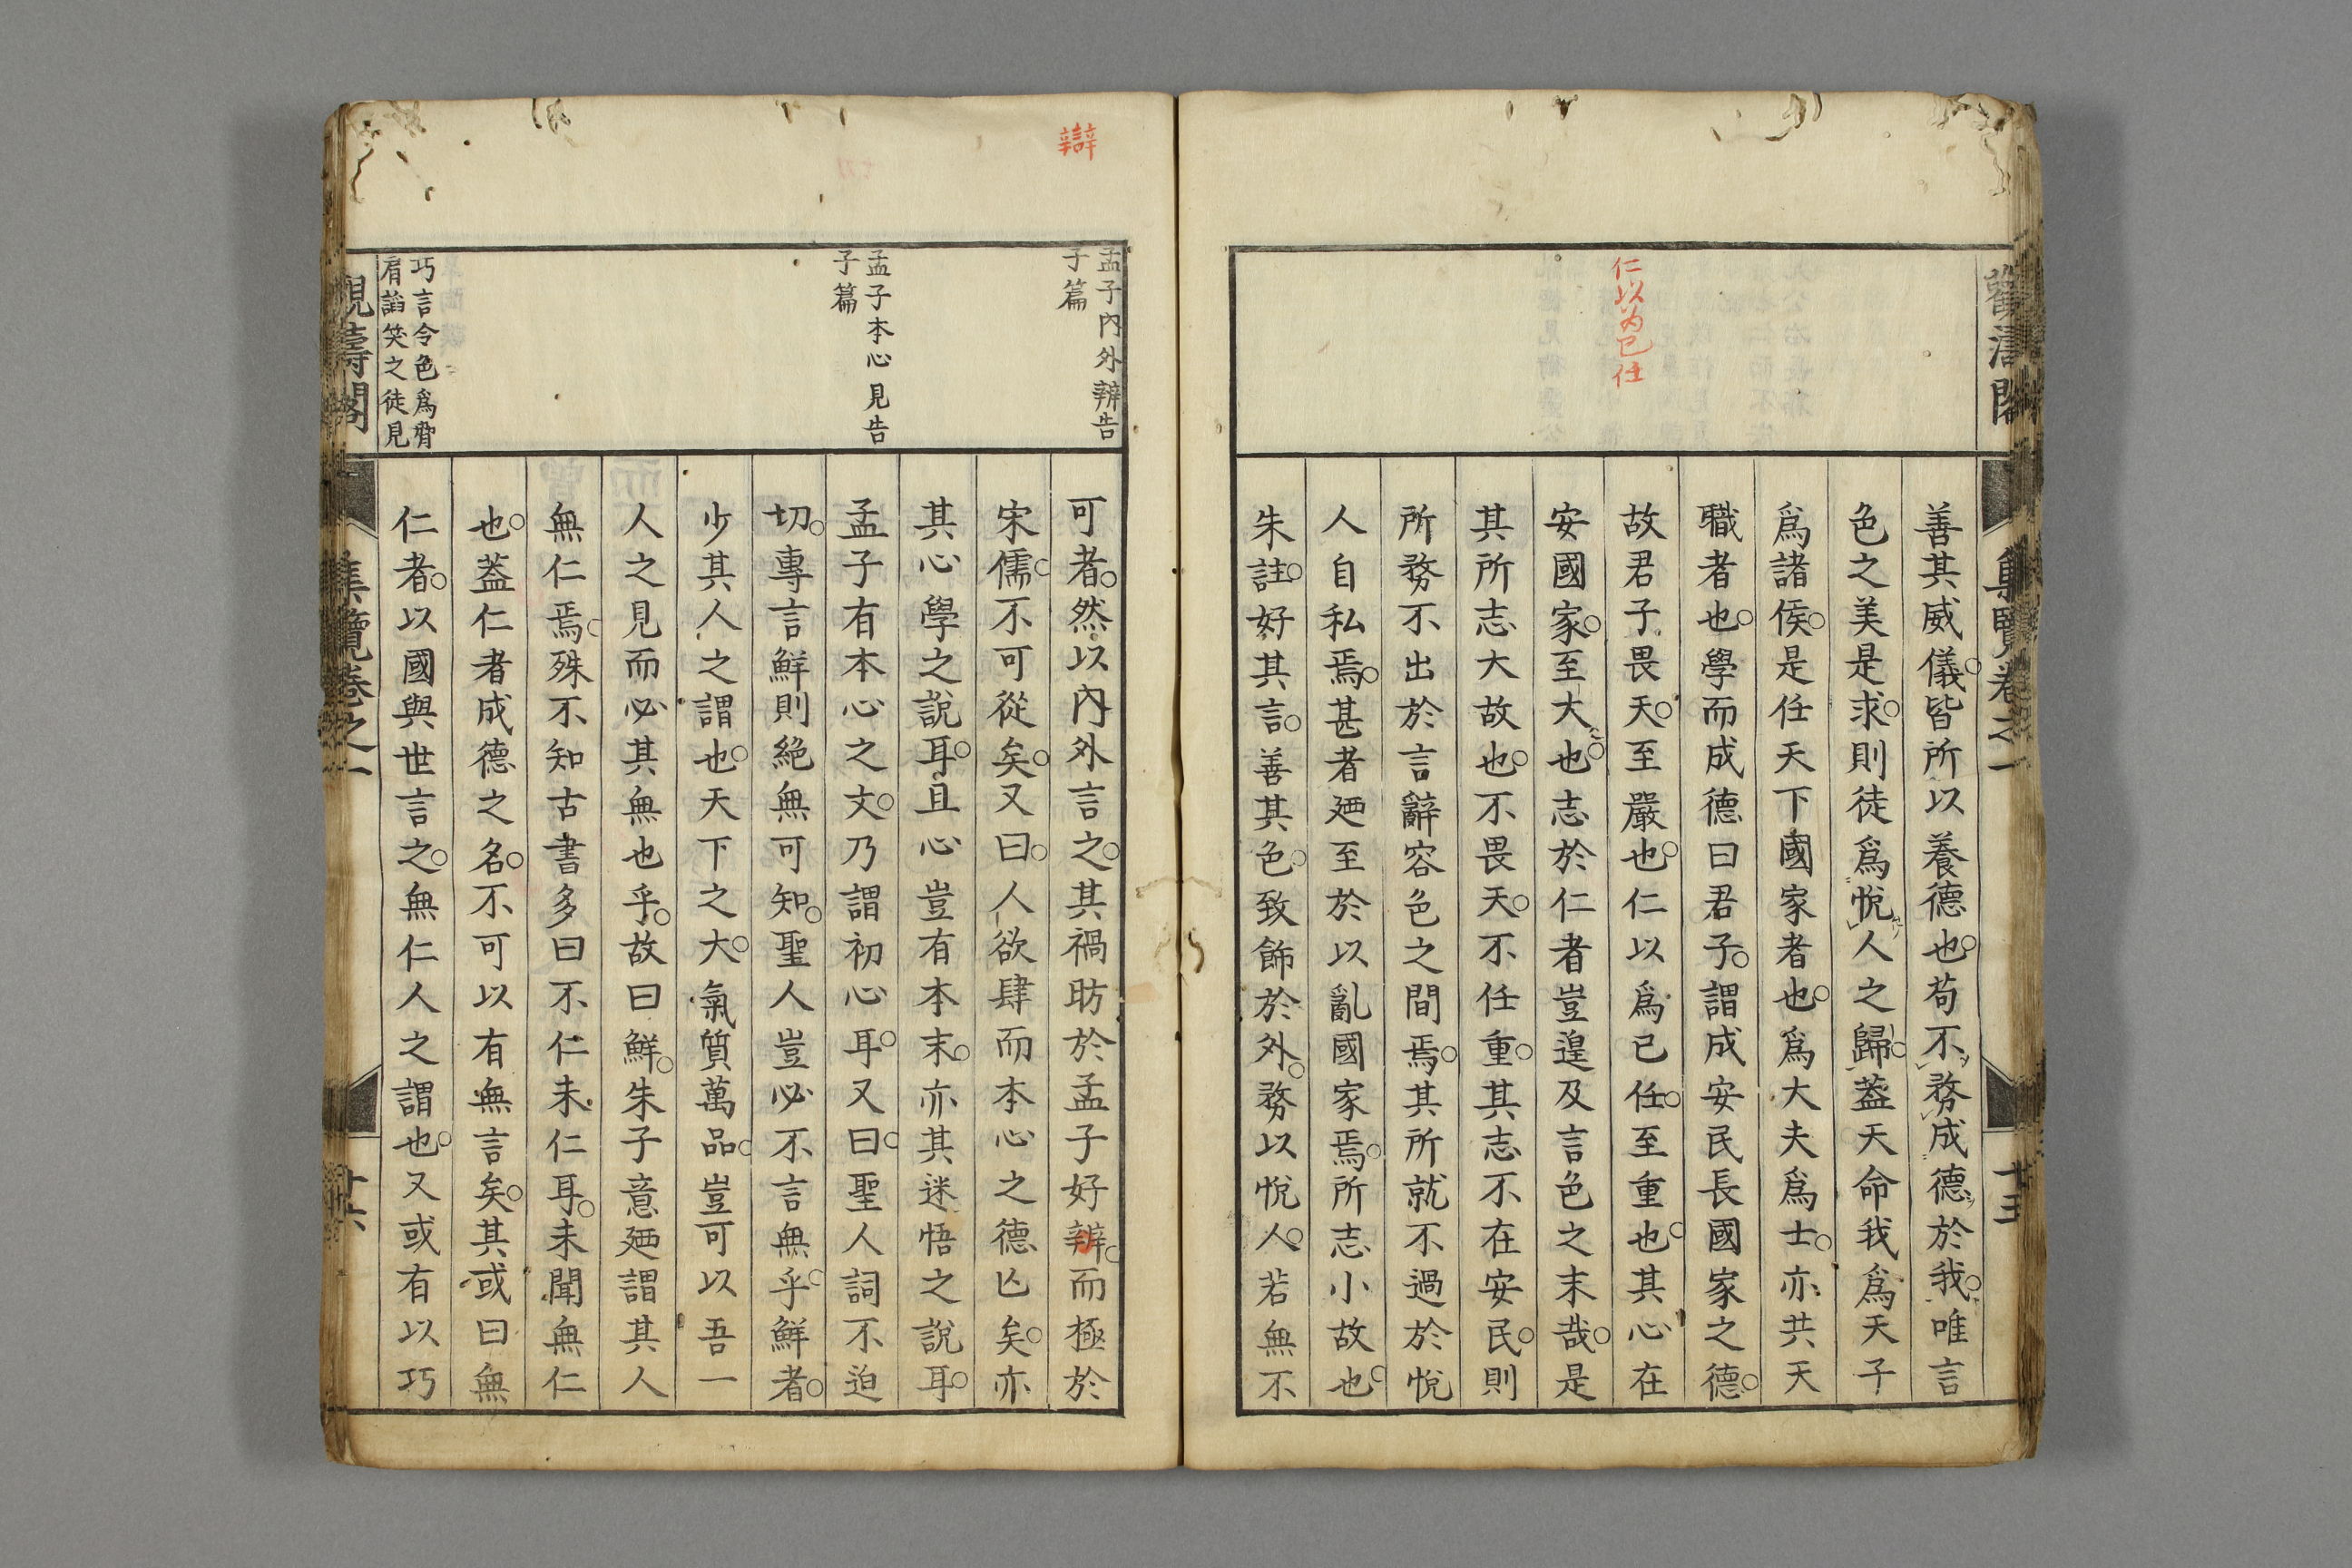 仁以为已任
善其威儀皆所以養德也苟不務成德於我唯言
色之美是求則徒爲悅人之歸蓋天命我爲天子
爲諸侯是任天下國家者也爲大夫爲士亦共天
職者也學而成德曰君子謂成安民長國家之德
故君子畏天至嚴也仁以爲己任至重也其心在
安國家至大也志於仁者豈遑及言色之末哉是
其所志大故也不畏天不任重其志不在安民則
所務不出於言辭容色之間焉其所就不過於悅
人自私焉甚者廼至於以亂國家焉所志小故也
朱註好其言善其色致飾於外務以悅人若無不
辯
孟子內外辨告
子篇
孟子本心見告
子篇
巧言令色爲脅
肩諂笑之徒見
可者然以內外言之其禍昉於孟子好辨而極於
宋儒不可從矣又曰人欲肆而本心之德亾矣亦
其心學之說耳且心豈有本末亦其迷悟之說耳
孟子有本心之文乃謂初心耳又曰聖人詞不迫
切專言鮮則絕無可知聖人豈必不言無乎鮮者
少其人之謂也天下之大氣質萬品豈可以吾一
人之見而必其無也乎故曰鮮朱子意廼謂其人
無仁焉殊不知古書多曰不仁未仁耳未聞無仁
也蓋仁者成德之名不可以有無言矣其或曰無
仁者以國與世言之無仁人之謂也又或有以巧
觀濤閣
集覽卷之一